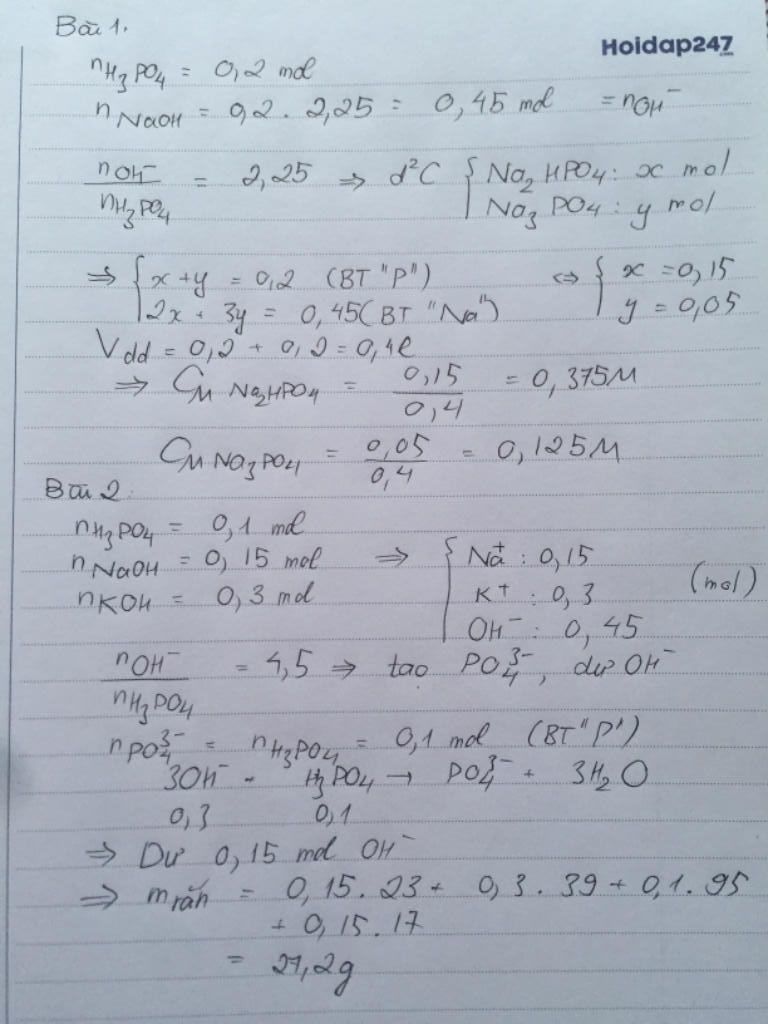 Bài 1.
Hoidap247.com
nH3PO4 = 0,2 mol
nNaOH = 0,2 . 2,25 = 0,45 mol = nOH⁻
nOH⁻ / nH3PO4 = 2,25 ⇒ d²C { Na2HPO4: x mol
Na3PO4: y mol
⇒ { x + y = 0,2 (BT "P") ⇔ { x = 0,15
2x + 3y = 0,45 (BT "Na") y = 0,05
Vdd = 0,2 + 0,2 = 0,4l
⇒ CM Na2HPO4 = 0,15 / 0,4 = 0,375M
CM Na3PO4 = 0,05 / 0,4 = 0,125M
Bài 2.
nH3PO4 = 0,1 mol
nNaOH = 0,15 mol ⇒ { Na⁺ : 0,15
nKOH = 0,3 mol K⁺ : 0,3 (mol)
OH⁻ : 0,45
nOH⁻ / nH3PO4 = 4,5 ⇒ tạo PO4³⁻, dư OH⁻
nPO4³⁻ = nH3PO4 = 0,1 mol (BT "P")
3OH⁻ - H3PO4 → PO4³⁻ + 3H2O
0,3 0,1
⇒ Dư 0,15 mol OH⁻
⇒ mrắn = 0,15 . 23 + 0,3 . 39 + 0,1 . 95
+ 0,15 . 17
= 27,2g